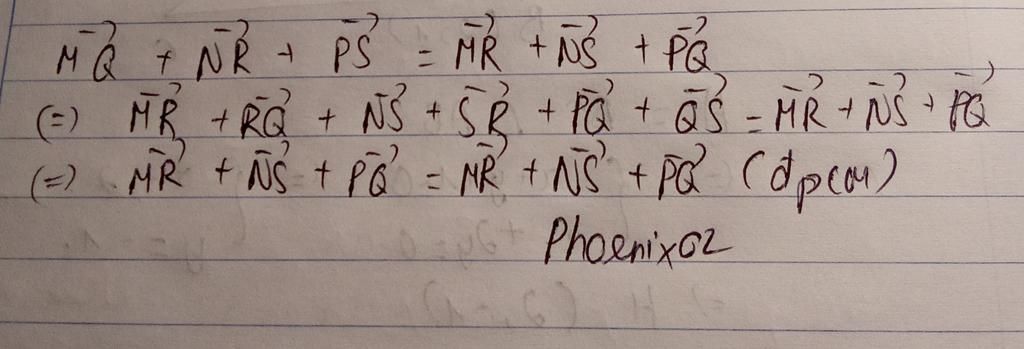 MQ⃗ + NR⃗ + PS⃗ = MR⃗ + NS⃗ + PQ⃗
(=) MR⃗ + RQ⃗ + NS⃗ + SR⃗ + PQ⃗ + QS⃗ = MR⃗ + NS⃗ + PQ⃗
(=) MR⃗ + NS⃗ + PQ⃗ = MR⃗ + NS⃗ + PQ⃗ (đpcm)
Phoenix02